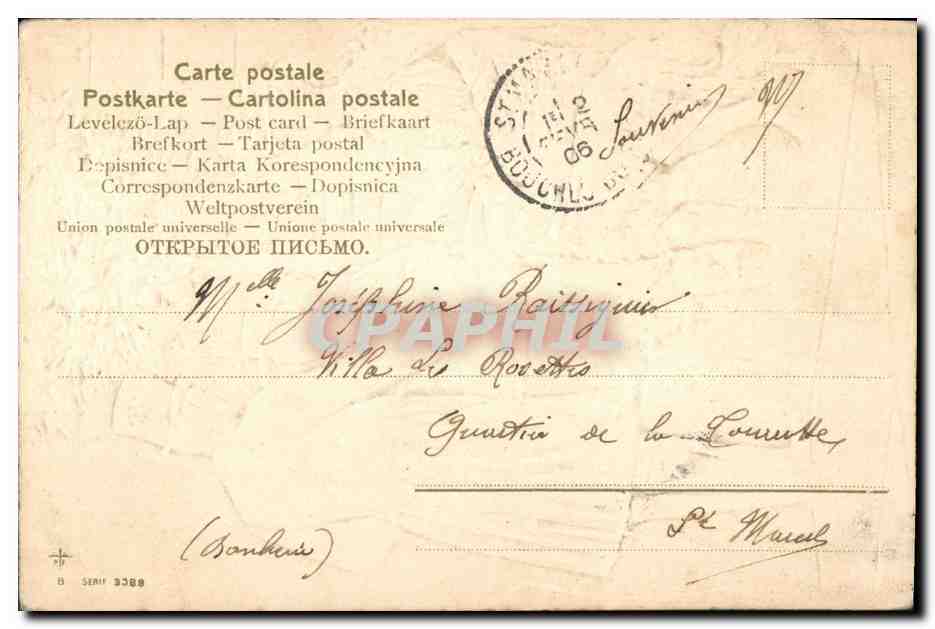 Carte postale
Postkarte — Cartolina postale
Levelező-Lap — Post card — Briefkaart
Brefkort — Tarjeta postal
Dopisnice — Karta Korespondencyjna
Correspondenzkarte — Dopisnica
Weltpostverein
Union postale universelle — Unione postale universale
ОТКРЫТОЕ ПИСЬМО.
ST MA
1
FEVR
06
BOUCHES DU
Souvenir
Melle Joséphine
CPAPHIL
Villa Les Rosettes
Quartier de la
St Marcel
(Banlieue)
B SERIE 3388